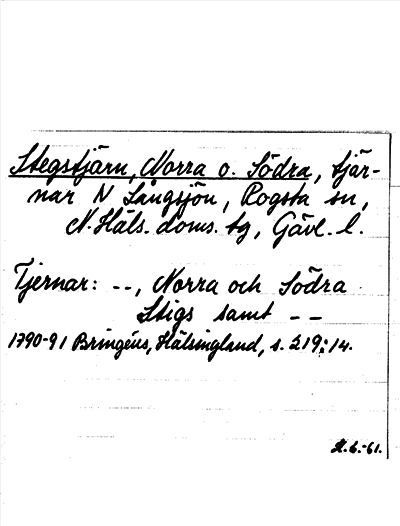 Stegstjärn, Norra o. Södra, tjär-
nar N Långsjön, Rogsta sn,
N. Häls. doms. tg, Gävl. l.
Tjernar: --, Norra och Södra
Stigs samt --
1790-91 Bringéus, Hälsingland, s. 219:14.
6.-61.